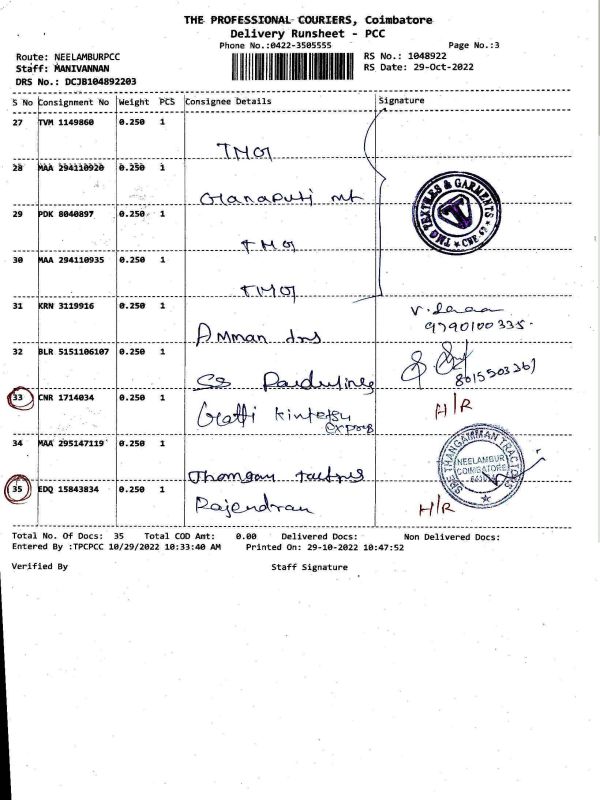 THE PROFESSIONAL COURIERS, Coimbatore
Delivery Runsheet - PCC
Phone No.:0422-3505555
Page No.:3
Route: NEELAMBURPCC
RS No.: 1048922
Staff: MANIVANNAN
RS Date: 29-Oct-2022
DRS No.: DCJB104892203
S No Consignment No Weight PCS Consignee Details Signature
27 TVM 1149860 0.250 1
TMOT
28 MAA 294110920 0.250 1
29 PDK 8040897 0.250 1
TMOT
30 MAA 294110935 0.250 1
TMOT
TMO TEXTILES & GARMENTS
31 KRN 3119916 0.250 1
Amman
9790100335
32 BLR 5151106107 0.250 1
SS
33 CNR 1714034 0.250 1
H/R
34 MAA 295147119 0.250 1
SREE THANGAMMAN TRACTORS
NEELAMBUR
COIMBATORE
35 EDQ 15843834 0.250 1
Rajendran
H/R
Total No. Of Docs: 35 Total COD Amt: 0.00 Delivered Docs: Non Delivered Docs:
Entered By :TPCPCC 10/29/2022 10:33:40 AM Printed On: 29-10-2022 10:47:52
Verified By Staff Signature